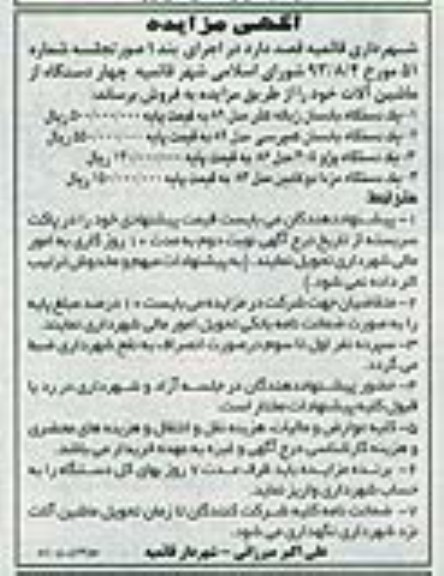 آگهی مزایده
شهرداری قائمیه قصد دارد در اجرای بند ۱ صورتجلسه شماره
۵۱ مورخ ۹۳/۸/۴ شورای اسلامی شهر قائمیه چهار دستگاه از
ماشین آلات خود را از طریق مزایده به فروش برساند:
۱- یک دستگاه نیسان زباله مدل به قیمت پایه ریال
۲- یک دستگاه نیسان کمپرسی مدل به قیمت پایه ریال
۳- یک دستگاه پژو مدل به قیمت پایه ریال
۴- یک دستگاه مزدا دو کابین مدل به قیمت پایه ریال
شرایط:
۱- پیشنهاددهندگان می بایست قیمت پیشنهادی خود را در پاکت
سربسته از تاریخ درج آگهی نوبت دوم به مدت ۱۰ روز کاری به امور
مالی شهرداری تحویل نمایند. (به پیشنهادات مبهم و مخدوش ترتیب
اثر داده نمی شود.)
۲- متقاضیان جهت شرکت در مزایده می بایست ۱۰ درصد مبلغ پایه
را به صورت ضمانت نامه بانکی تحویل امور مالی شهرداری نمایند.
۳- سپرده نفر اول تا سوم در صورت انصراف به نفع شهرداری ضبط
می گردد.
۴- حضور پیشنهاددهندگان در جلسه آزاد و شهرداری در رد یا
قبول کلیه پیشنهادات مختار است.
۵- کلیه عوارض و مالیات، هزینه نقل و انتقال و هزینه های محضری
و هزینه کارشناسی درج آگهی و غیره به عهده خریدار می باشد.
۶- برنده مزایده باید ظرف مدت ۷ روز بهای کل دستگاه را به
حساب شهرداری واریز نماید.
۷- ضمانت نامه کلیه شرکت کنندگان تا زمان تحویل ماشین آلات
نزد شهرداری نگهداری می شود.
علی اکبر میرزائی - شهردار قائمیه